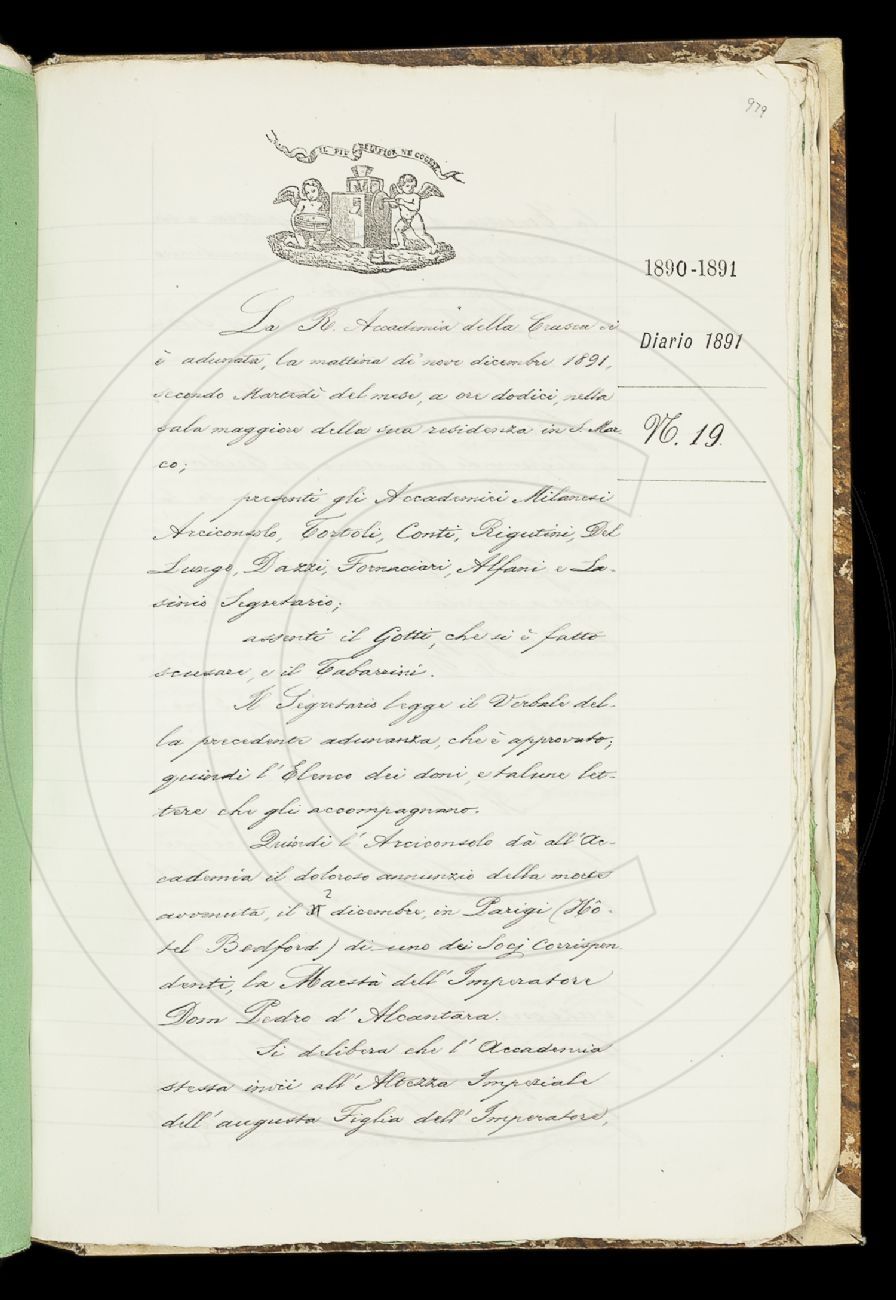 979
IL PIÙ BEL FIOR NE COGLIE
1890-1891
Diario 1891
N. 19
La R. Accademia della Crusca si
è adunata, la mattina de' nove dicembre 1891,
secondo Martedì del mese, a ore dodici, nella
sala maggiore della sua residenza in S. Mar-
co;
presenti gli Accademici Milanesi
Arciconsolo, Tortoli, Conti, Rigutini, Del
Lungo, Dazzi, Fornaciari, Alfani e La-
sinio Segretario;
assenti il Gotti, che si è fatto
scusare, e il Tabarrini.
Il Segretario legge il Verbale del-
la precedente adunanza, che è approvato;
quindi l'Elenco dei doni, e talune let-
tere che gli accompagnano.
Quindi l'Arciconsolo dà all'Ac-
cademia il doloroso annunzio della morte
avvenuta, il 2 dicembre, in Parigi (Hô-
tel Bedford) di uno dei Socj Corrispon
denti, la Maestà dell'Imperatore
Dom Pedro d'Alcantara.
Si delibera che l'Accademia
stessa invii all'Altezza Imperiale
dell'augusta Figlia dell'Imperatore,